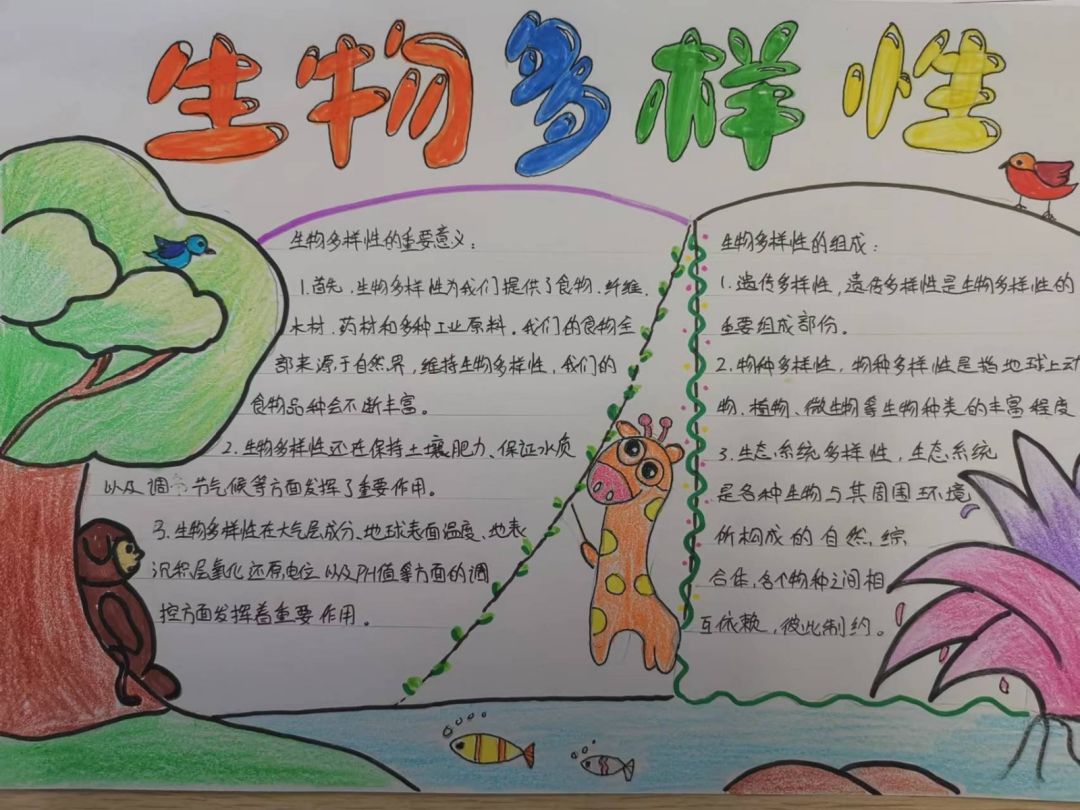 生物多样性
生物多样性的重要意义：
1.首先，生物多样性为我们提供了食物、纤维、
木材、药材和多种工业原料。我们的食物全
部来源于自然界，维持生物多样性，我们的
食物品种会不断丰富。
2.生物多样性还在保持土壤肥力、保证水质
以及调节节气候等方面发挥了重要作用。
3.生物多样性在大气层成分、地球表面温度、地表
沉积层氧化还原电位以及PH值等方面的调
控方面发挥着重要作用。
生物多样性的组成：
1.遗传多样性，遗传多样性是生物多样性的
重要组成部份。
2.物种多样性，物种多样性是指地球上动
物、植物、微生物等生物种类的丰富程度
3.生态系统多样性，生态系统
是各种生物与其周围环境
所构成的自然综
合体，各个物种之间相
互依赖，彼此制约。